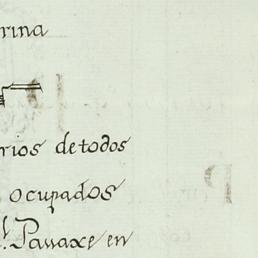 rina
rios de todos
s ocupados
l. Parraxe en